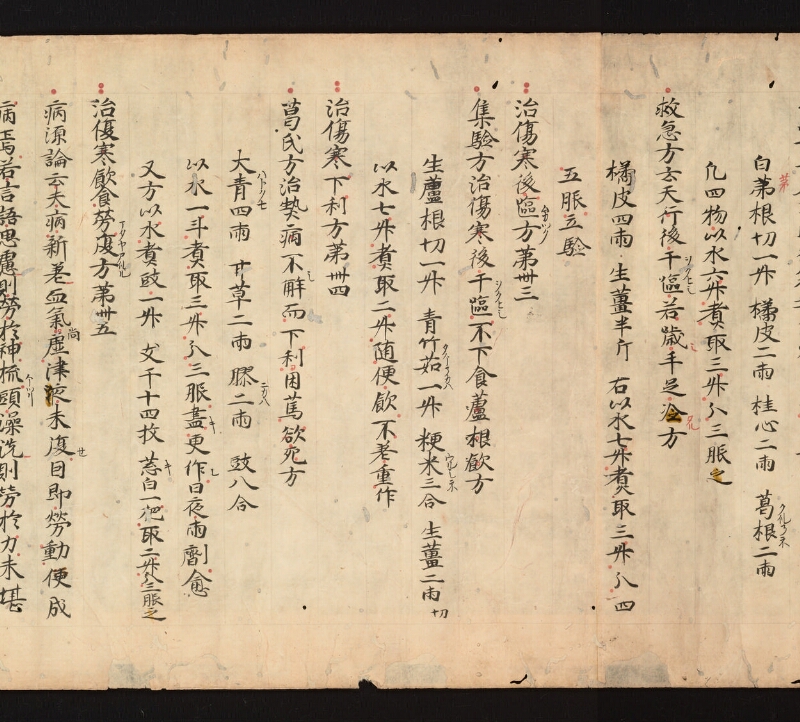 白茅根切一升 橘皮二兩 桂心二兩 葛根二兩
凡四物以水六升煮取三升分三服之
救急方云天行後干嘔若噦手足冷方
橘皮四兩 生薑半斤 右以水七升煮取三升分四
五服立驗
治傷寒後嘔方第卅三
集驗方治傷寒後干嘔不下食蘆根飲方
生蘆根切一升 青竹茹一升 粳米三合 生薑二兩切
以水七升煮取二升随便飲不差重作
治傷寒下利方第卅四
葛氏方治熱病不解而下利困篤欲死方
大青四兩 甘草二兩 膠二兩 豉八合
以水一斗煮取三升分三服盡更作日夜兩劑愈
又方以水煮豉一升 支子十四枚 葱白一把取二升分三服之
治傷寒飲食勞復方第卅五
病源論云夫病新差血氣尚虛津液未復因即勞動便成
病焉若言語思慮則勞於神梳頭澡洗則勞於力未堪